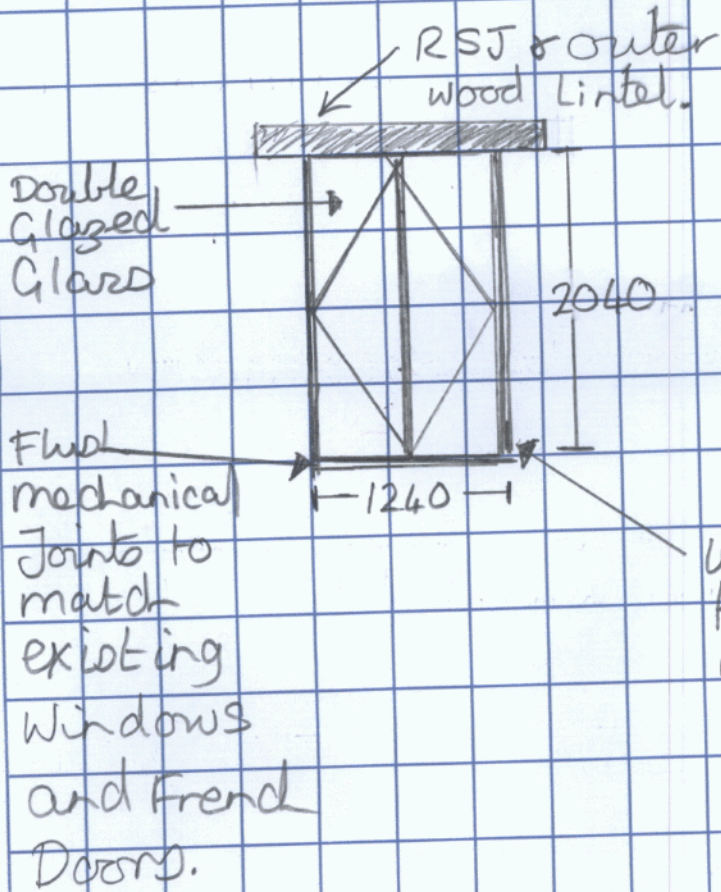 RSJ & outer
wood Lintel.
Double
Glazed
Glass
2040
mechanical
Joints to
match
existing
Windows
and French
Doors.
1240